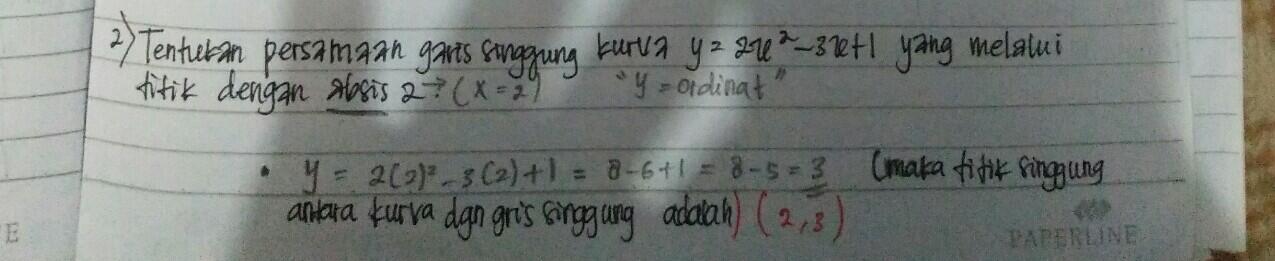 2) Tentukan persamaan garis singgung kurva y = 2x² - 3x + 1 yang melalui
titik dengan absis 2? (x = 2) "y = ordinat"
• y = 2(2)² - 3(2) + 1 = 8 - 6 + 1 = 8 - 5 = 3 (maka titik singgung
antara kurva dgn gris singgung adalah) (2,3)
E
PAPERLINE